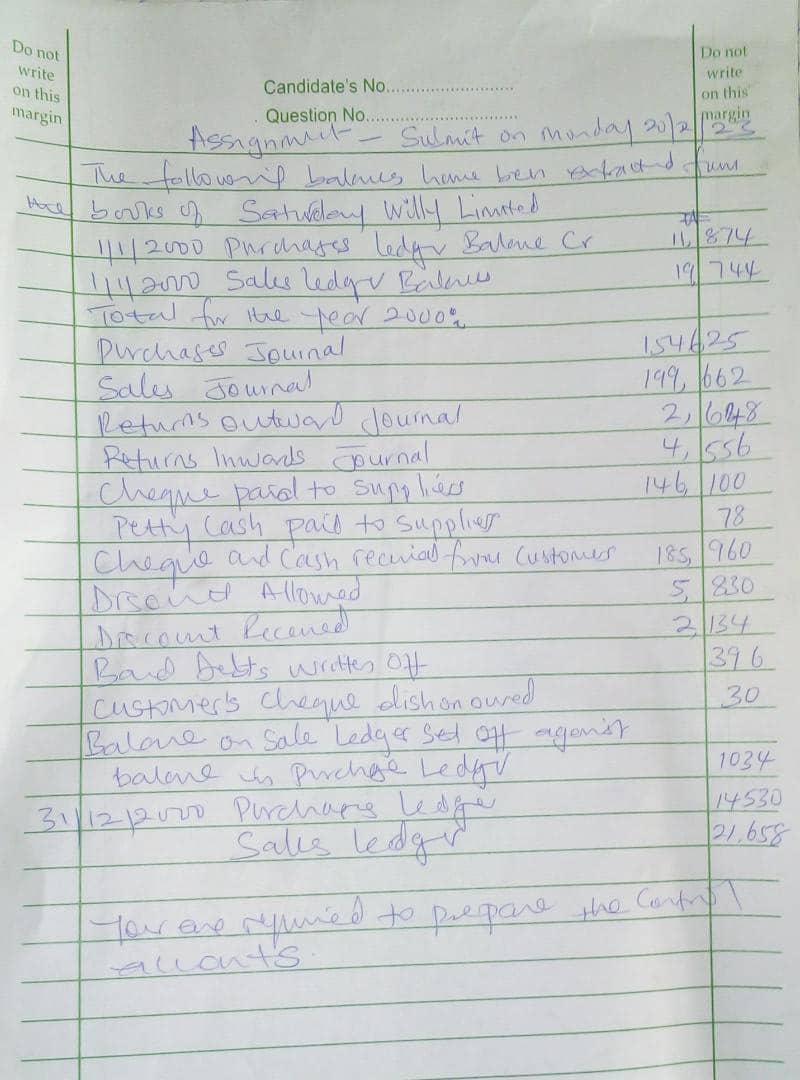 Do not write on this margin
Do not write on this margin
Candidate's No.............................
Question No.................................
Assignment – Submit on Monday 20/2/23
The following balances have been extracted from
the books of Saturday Willy Limited
1/1/2000 Purchases ledger Balance Cr 11,874
1/1/2000 Sales Ledger Balances 19 744
Total for the year 2000:
Purchases Journal 154625
Sales Journal 199,662
Returns outward Journal
Returns Inwards Journal 4,556
Cheque paid to Suppliers 146,100
Petty Cash paid to Supplies 78
Cheque and Cash received from Customers 185,960
Discount Allowed 5,830
Discount Received 2,134
Bad Debts written Off 396
Customer's Cheque dishonoured 30
Balance on Sale Ledger Set off against
balance in Purchase Ledger 1034
31/12/2000 Purchases ledger 14530
Sales ledger 21,658
You are required to prepare the Control
accounts.